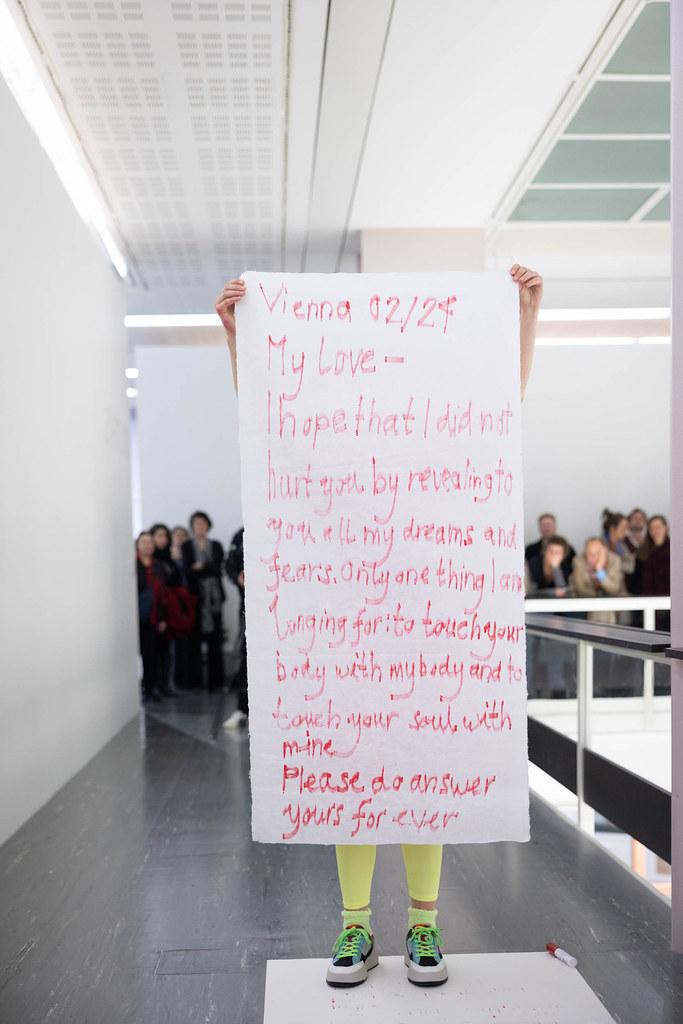 Vienna 02/24
My love –
I hope that I did not
hurt you by revealing to
you all my dreams and
fears. Only one thing I am
longing for: to touch your
body with my body and to
touch your soul with
mine
Please do answer
yours for ever